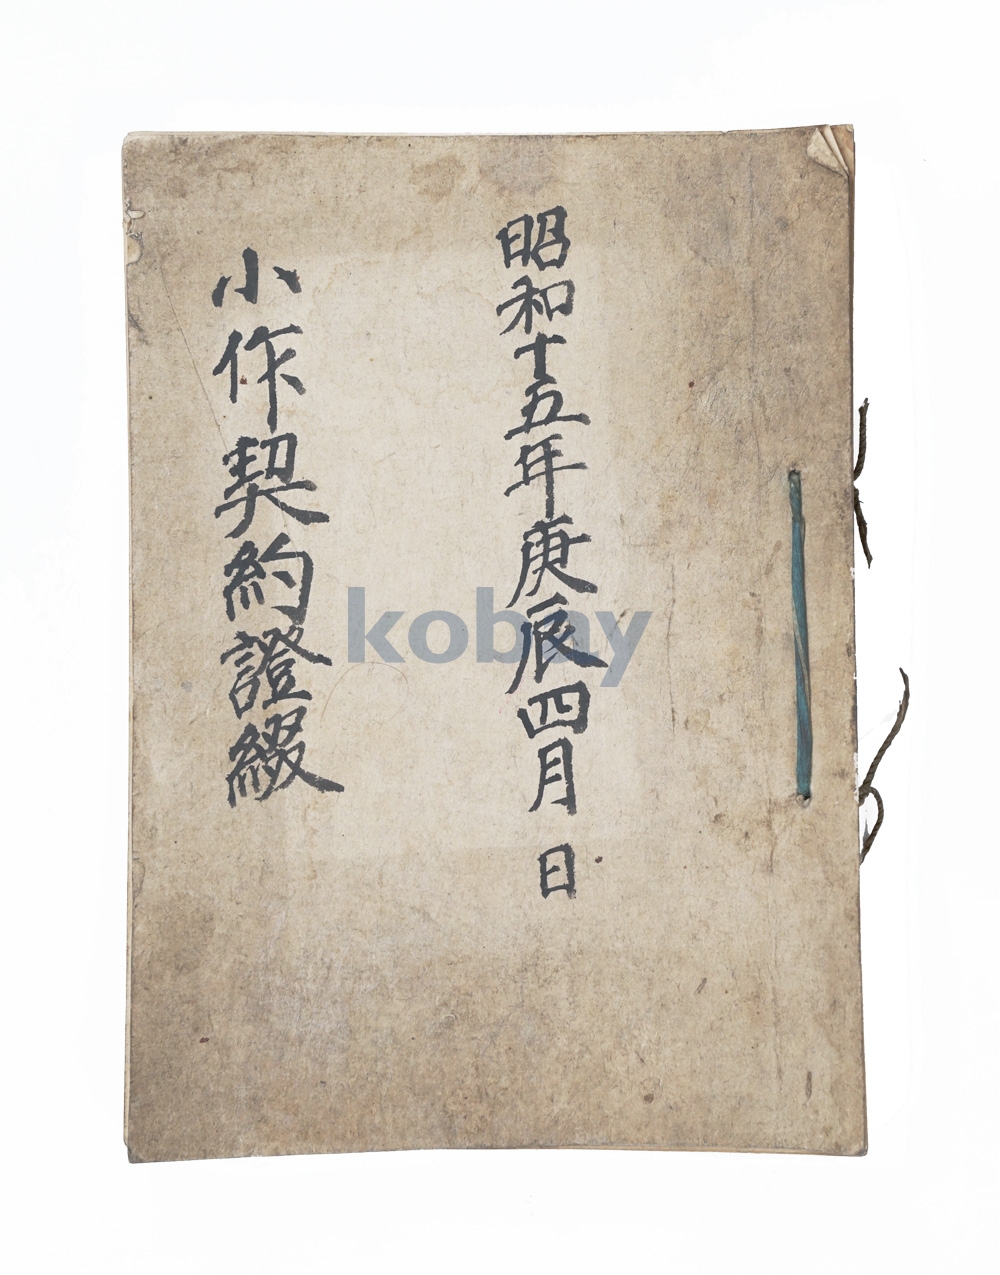 昭和十五年庚辰四月 日
小作契約證綴
kobay